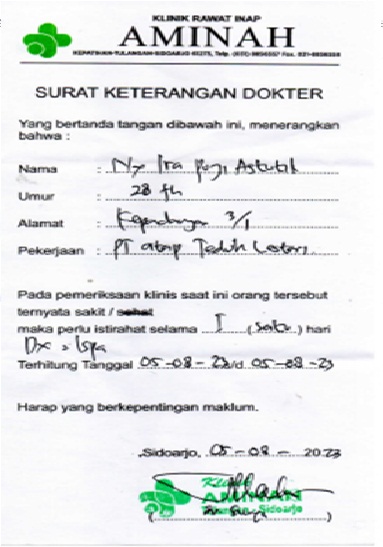 KLINIK RAWAT INAP
AMINAH
SURAT KETERANGAN DOKTER
Yang bertanda tangan dibawah ini, menerangkan
bahwa :
Nama : Ny Ira Puji Astutik
Umur : 28 th
Alamat : 3/1
Pekerjaan : PT atap Teduh Lestari
Pada pemeriksaan klinis saat ini orang tersebut
ternyata sakit / sehat
maka perlu istirahat selama I (satu) hari
Dx = Ispa
Terhitung Tanggal 05-08-23 s/d 05-08-23
Harap yang berkepentingan maklum.
Sidoarjo, 05-08-2023
AMINAH
Sidoarjo